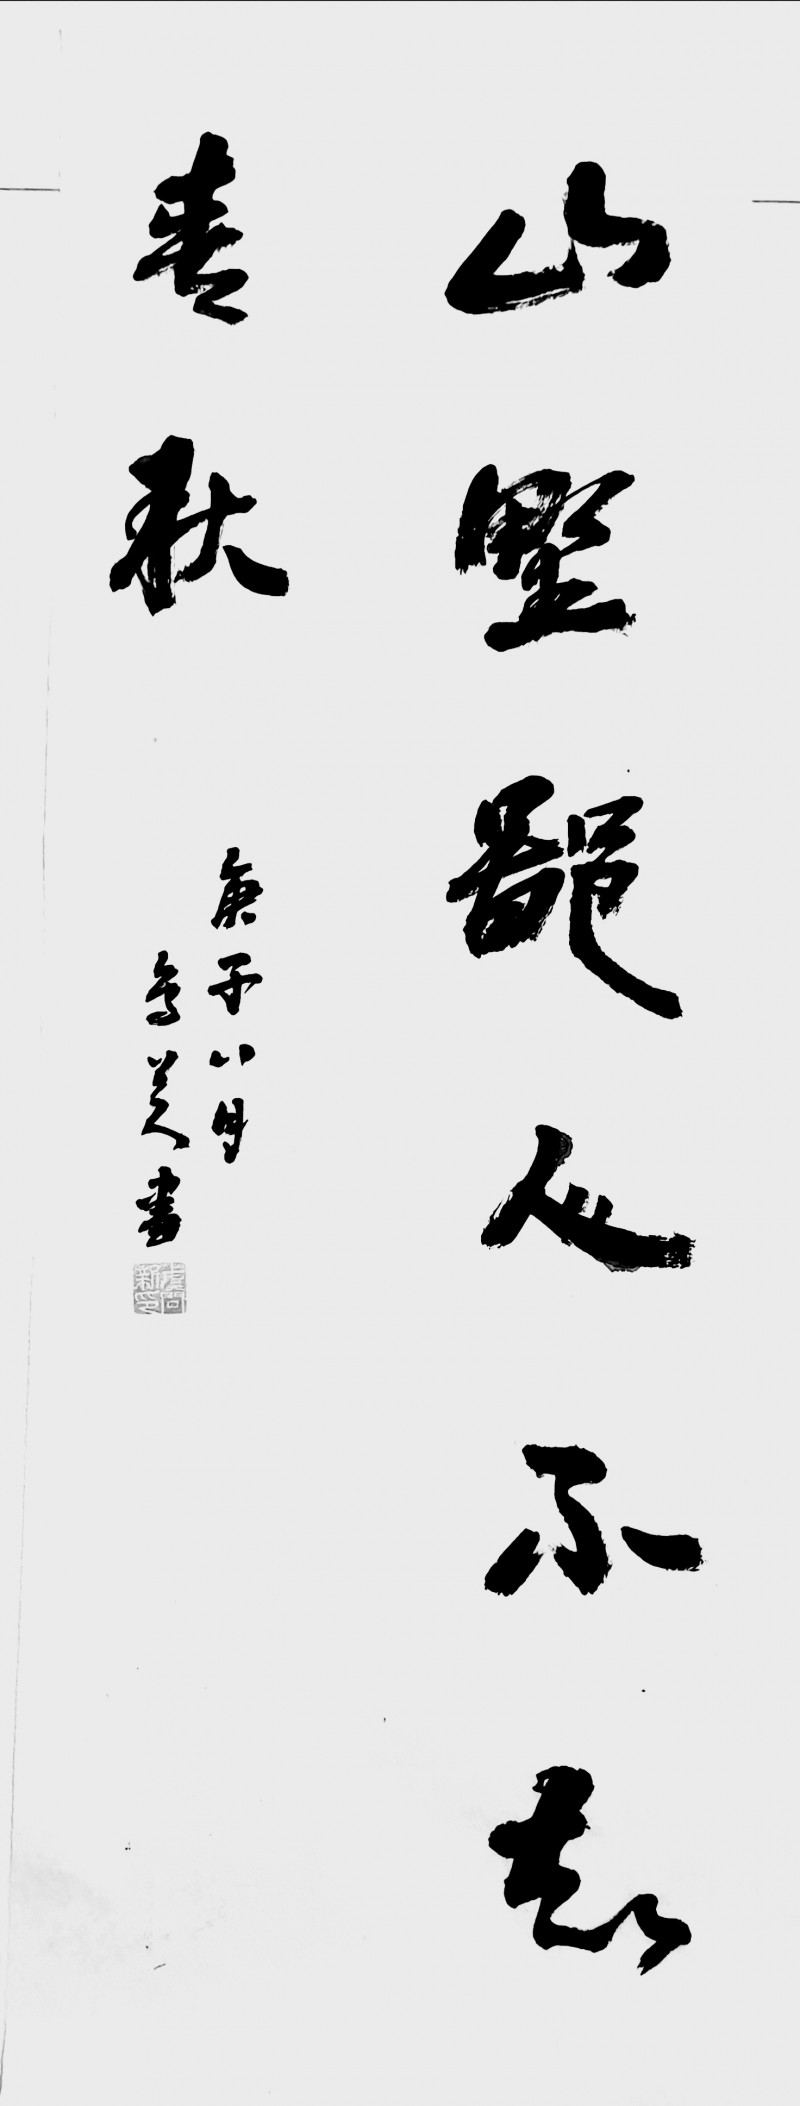 山野鄙人不知
春秋
庚子八月
書